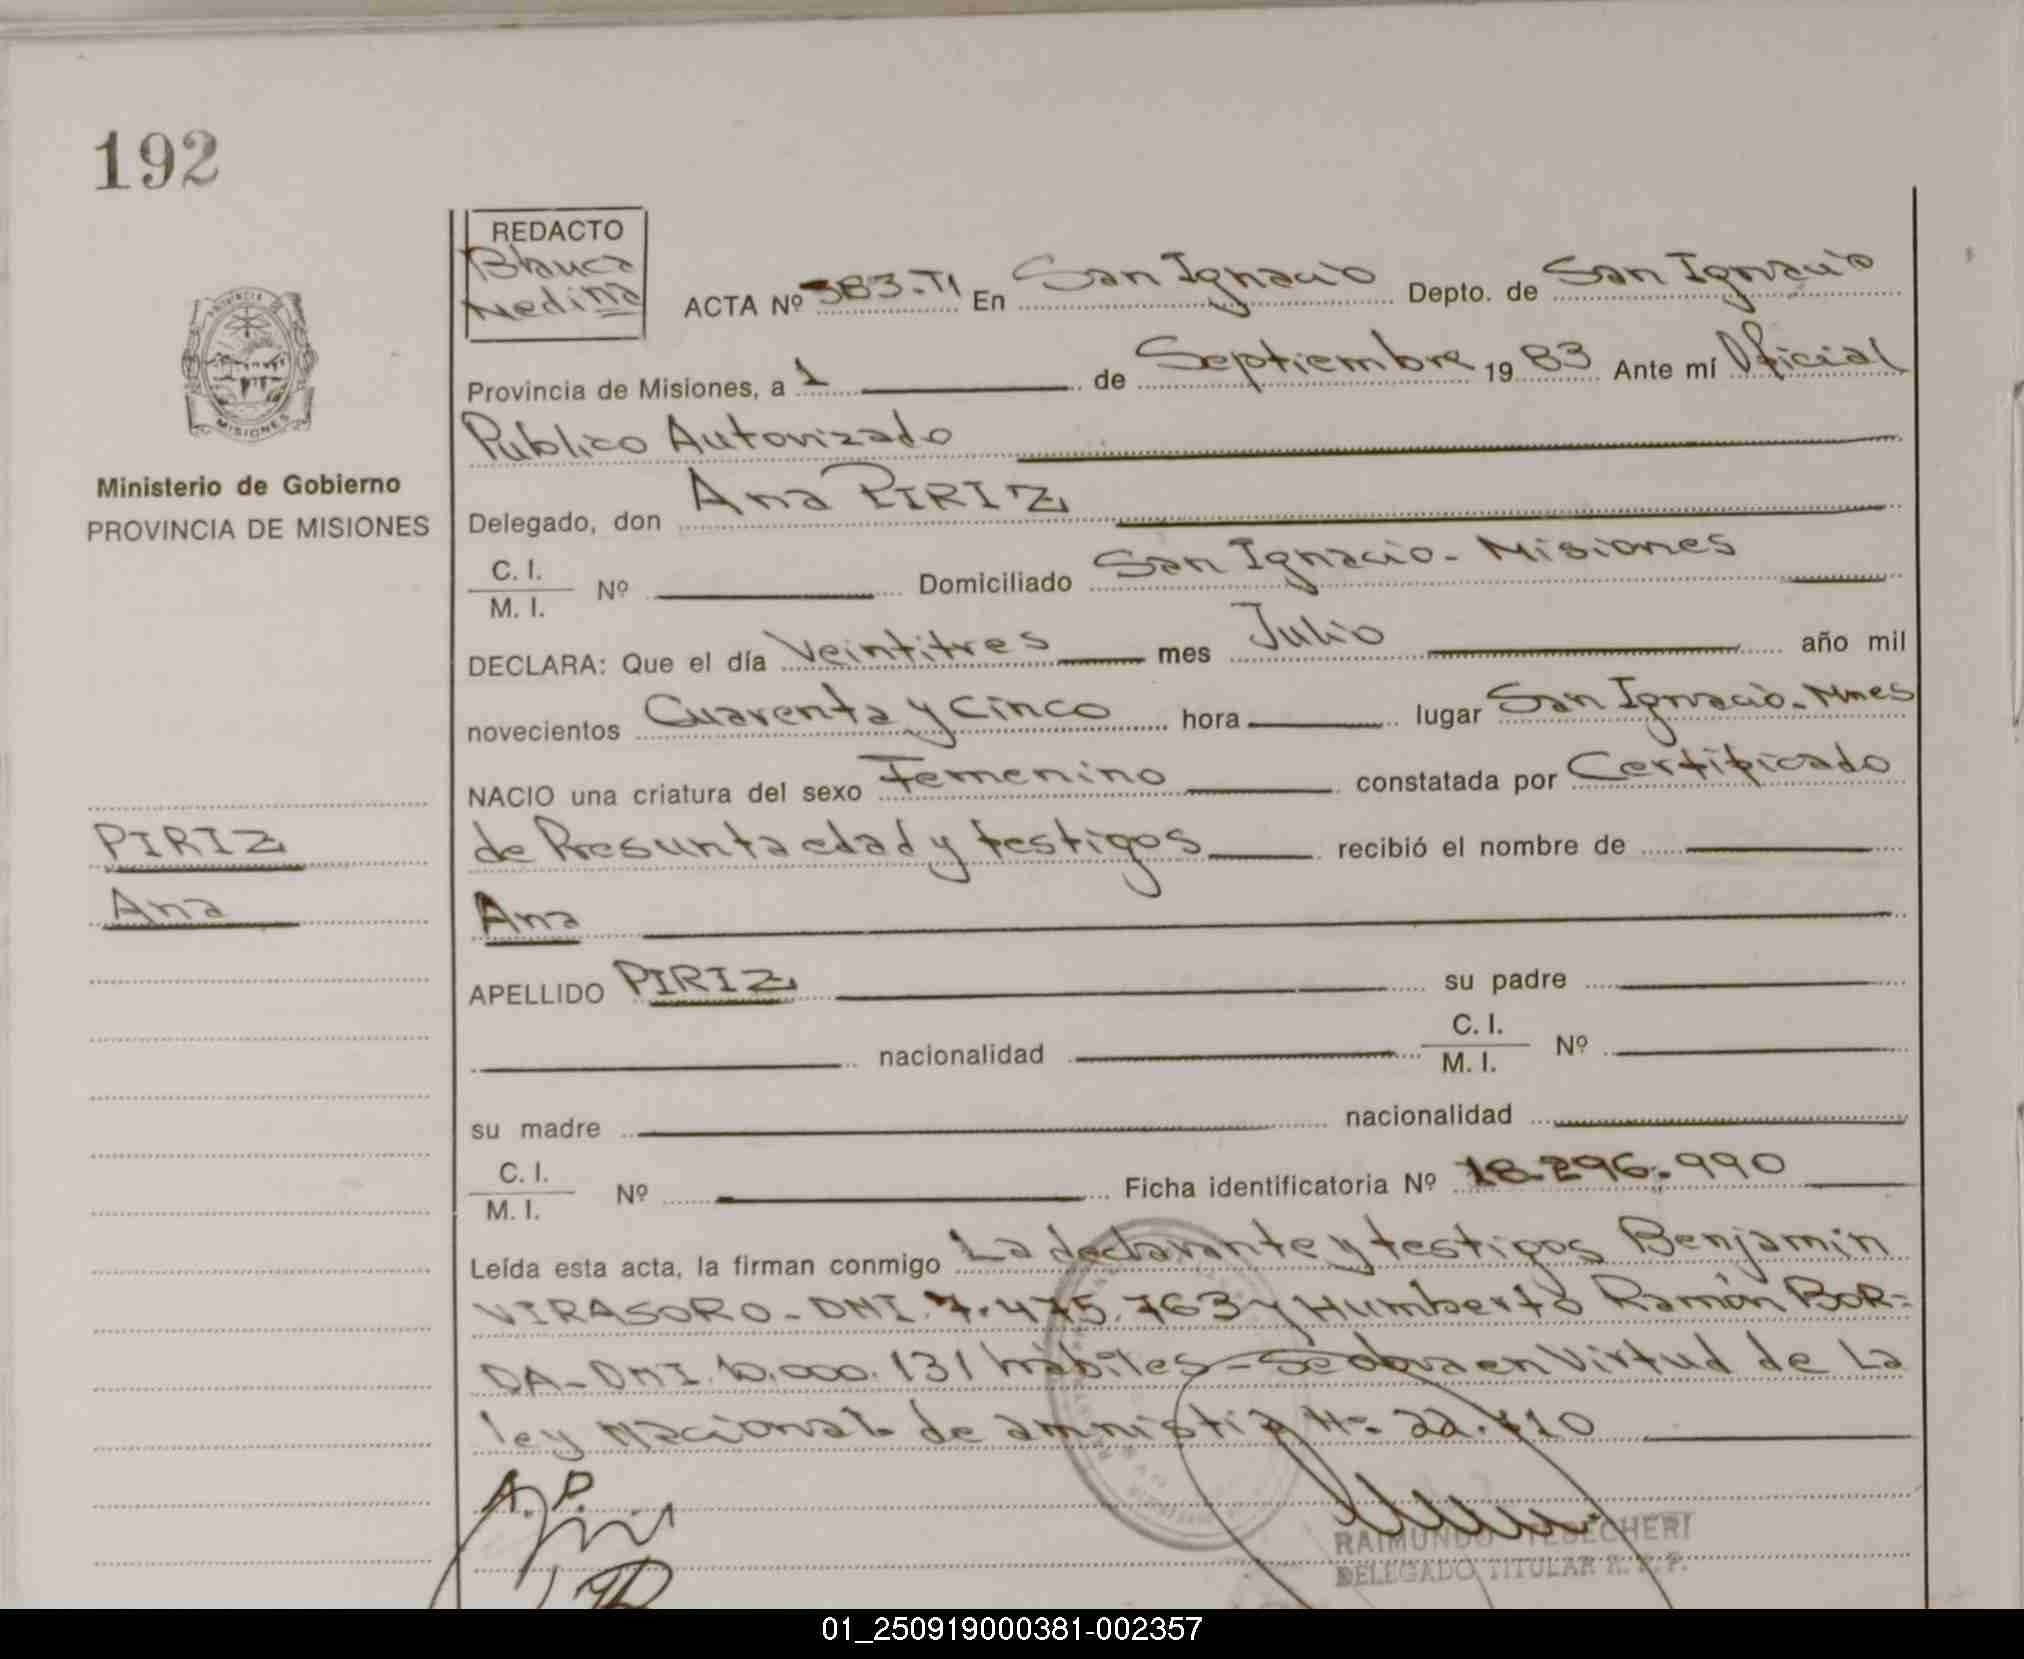 192
REDACTO
Blanca
Medina
ACTA Nº 383.TI En San Ignacio Depto. de San Ignacio
Provincia de Misiones, a 1 de Septiembre 1983 Ante mí Oficial
Publico Autorizado
Delegado, don Ana PIRIZ
C. I.
M. I. Nº Domiciliado San Ignacio - Misiones
DECLARA: Que el día Veintitres mes Julio año mil
novecientos Cuarenta y Cinco hora lugar San Ignacio - Mnes
NACIO una criatura del sexo Femenino constatada por Certificado
de Presunta edad y testigos recibió el nombre de
Ana
APELLIDO PIRIZ su padre
nacionalidad C. I.
M. I. Nº
su madre nacionalidad
C. I.
M. I. Nº Ficha identificatoria Nº 18.296.990
Leída esta acta, la firman conmigo La declarante y testigos Benjamin
VIRASORO - DNI. 7.475.763 y Humberto Ramón BOR=
DA - DNI. 10.000.131 hábiles - Se obra en Virtud de La
ley Nacional de amnistia Nº 22.
A. P.
RAIMUNDO
DELEGADO TITULAR R. P. P.
PROVINCIA
MISIONES
Ministerio de Gobierno
PROVINCIA DE MISIONES
PIRIZ
Ana
01_250919000381-002357